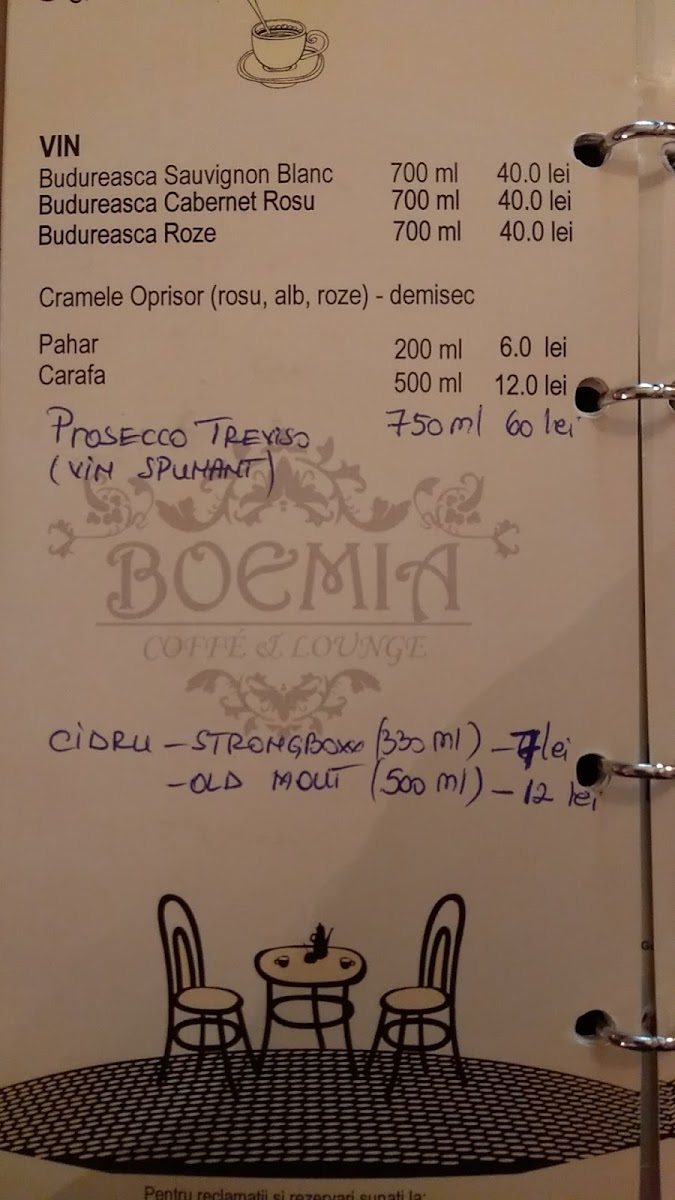 VIN
Budureasca Sauvignon Blanc 700 ml 40.0 lei
Budureasca Cabernet Rosu 700 ml 40.0 lei
Budureasca Roze 700 ml 40.0 lei
Cramele Oprisor (rosu, alb, roze) - demisec
Pahar 200 ml 6.0 lei
Carafa 500 ml 12.0 lei
PROSECCO TREVISO 750 ml 60 lei
(VIN SPUMANT)
BOEMIA
COFFÉ & LOUNGE
CIDRU - STRONGBOW (330 ml) - 7 lei
- OLD MOUT (500 ml) - 12 lei
Pentru reclamatii si rezervari sunati la: